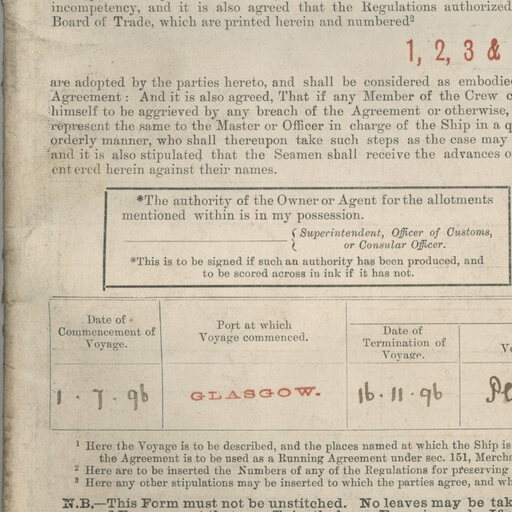 incompetency, and it is also agreed that the Regulations authorized
Board of Trade, which are printed herein and numbered²
1, 2, 3 &
are adopted by the parties hereto, and shall be considered as embodie
Agreement: And it is also agreed, That if any Member of the Crew c
himself to be aggrieved by any breach of the Agreement or otherwise,
represent the same to the Master or Officer in charge of the Ship in a q
orderly manner, who shall thereupon take such steps as the case may
and it is also stipulated that the Seamen shall receive the advances o
entered herein against their names.
*The authority of the Owner or Agent for the allotments
mentioned within is in my possession.
Superintendent, Officer of Customs,
or Consular Officer.
*This is to be signed if such an authority has been produced, and
to be scored across in ink if it has not.
Date of
Commencement of
Voyage.
Port at which
Voyage commenced.
Date of
Termination of
Voyage.
1 . 7 . 96
GLASGOW.
16 . 11 . 96
¹ Here the Voyage is to be described, and the places named at which the Ship is
the Agreement is to be used as a Running Agreement under sec. 151, Mercha
² Here are to be inserted the Numbers of any of the Regulations for preserving
³ Here any other stipulations may be inserted to which the parties agree, and wh
N.B.—This Form must not be unstitched. No leaves may be tak